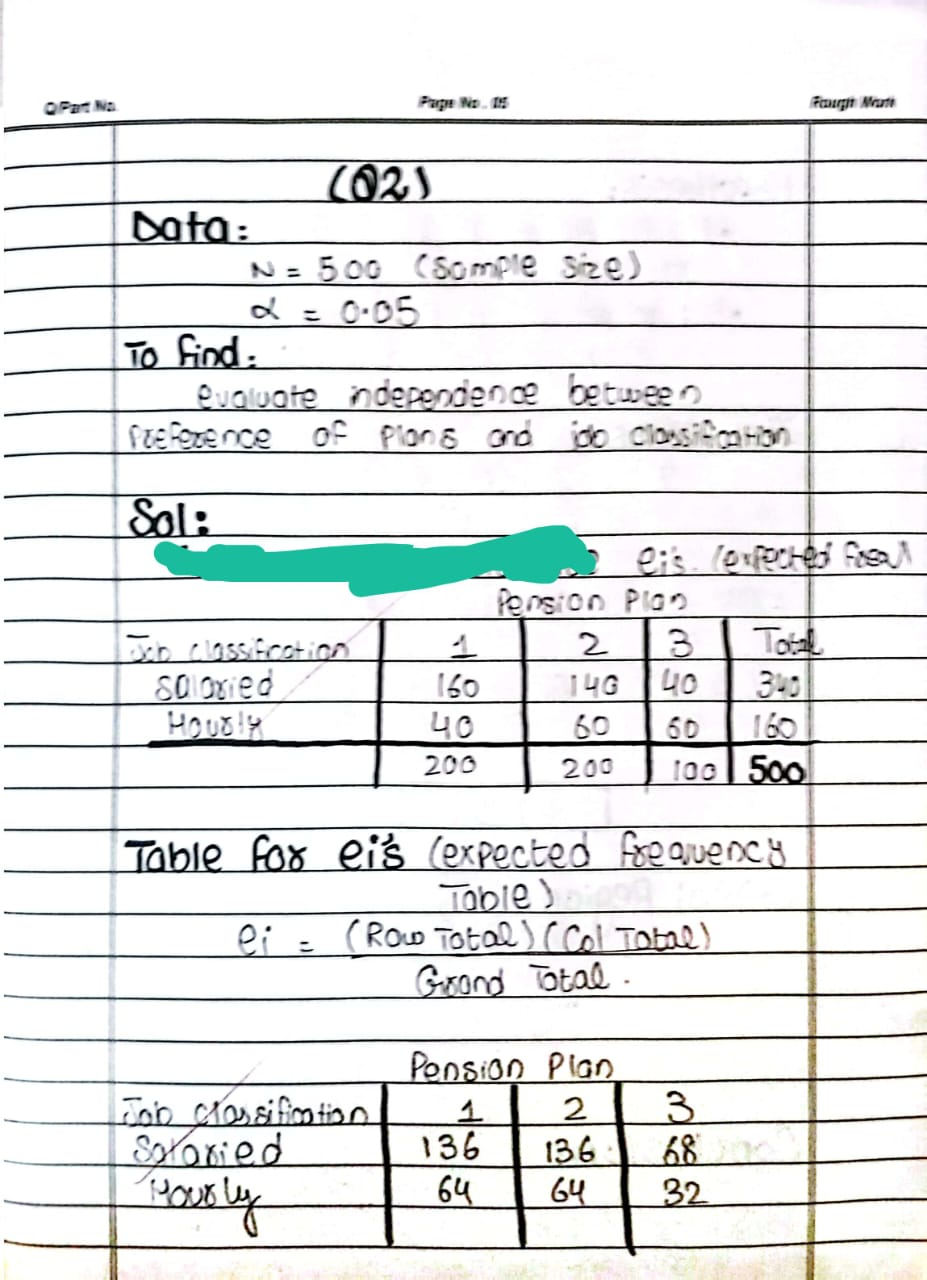 Q Part No. Page No. 05 Rough Work
(Q2)
Data:
N = 500 (Sample Size)
α = 0.05
To find:
evaluate independence between
Preference of Plans and job classification
Sol:
ei's. (expected
Pension Plan
Job classification 1 2 3 Total
Salaried 160 140 40 340
Hourly 40 60 60 160
200 200 100 500
Table for ei's (expected frequency
Table)
ei = (Row Total) (Col Total)
Grand Total.
Pension Plan
Job classification 1 2 3
Salaried 136 136 68
Hourly 64 64 32